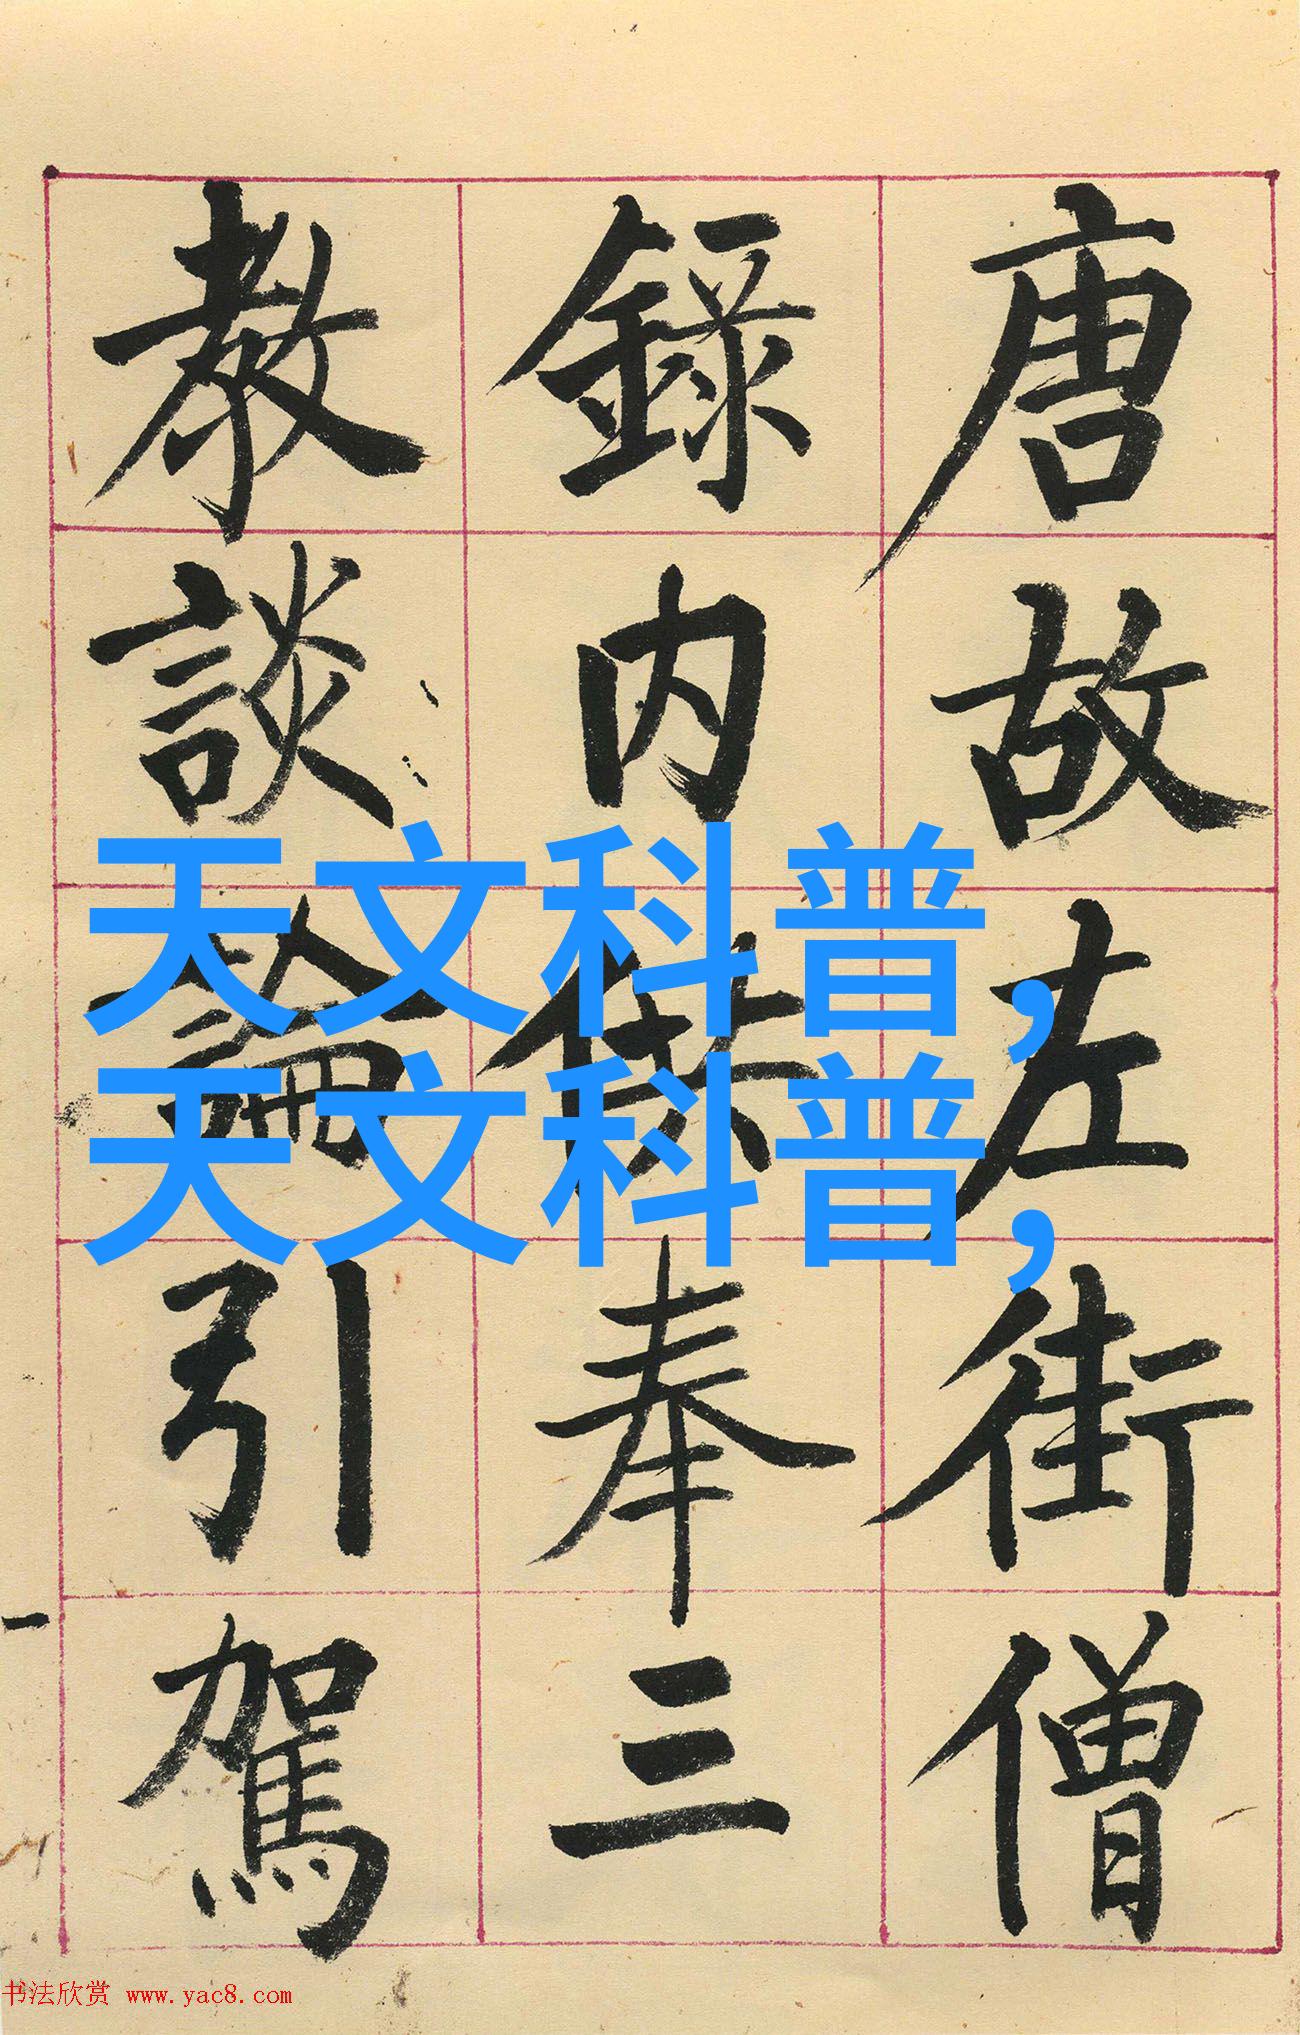 唐故左街僧
録内供奉三
教談論引駕
天文科普,
天文科普,
书法欣赏 www.yac8.com